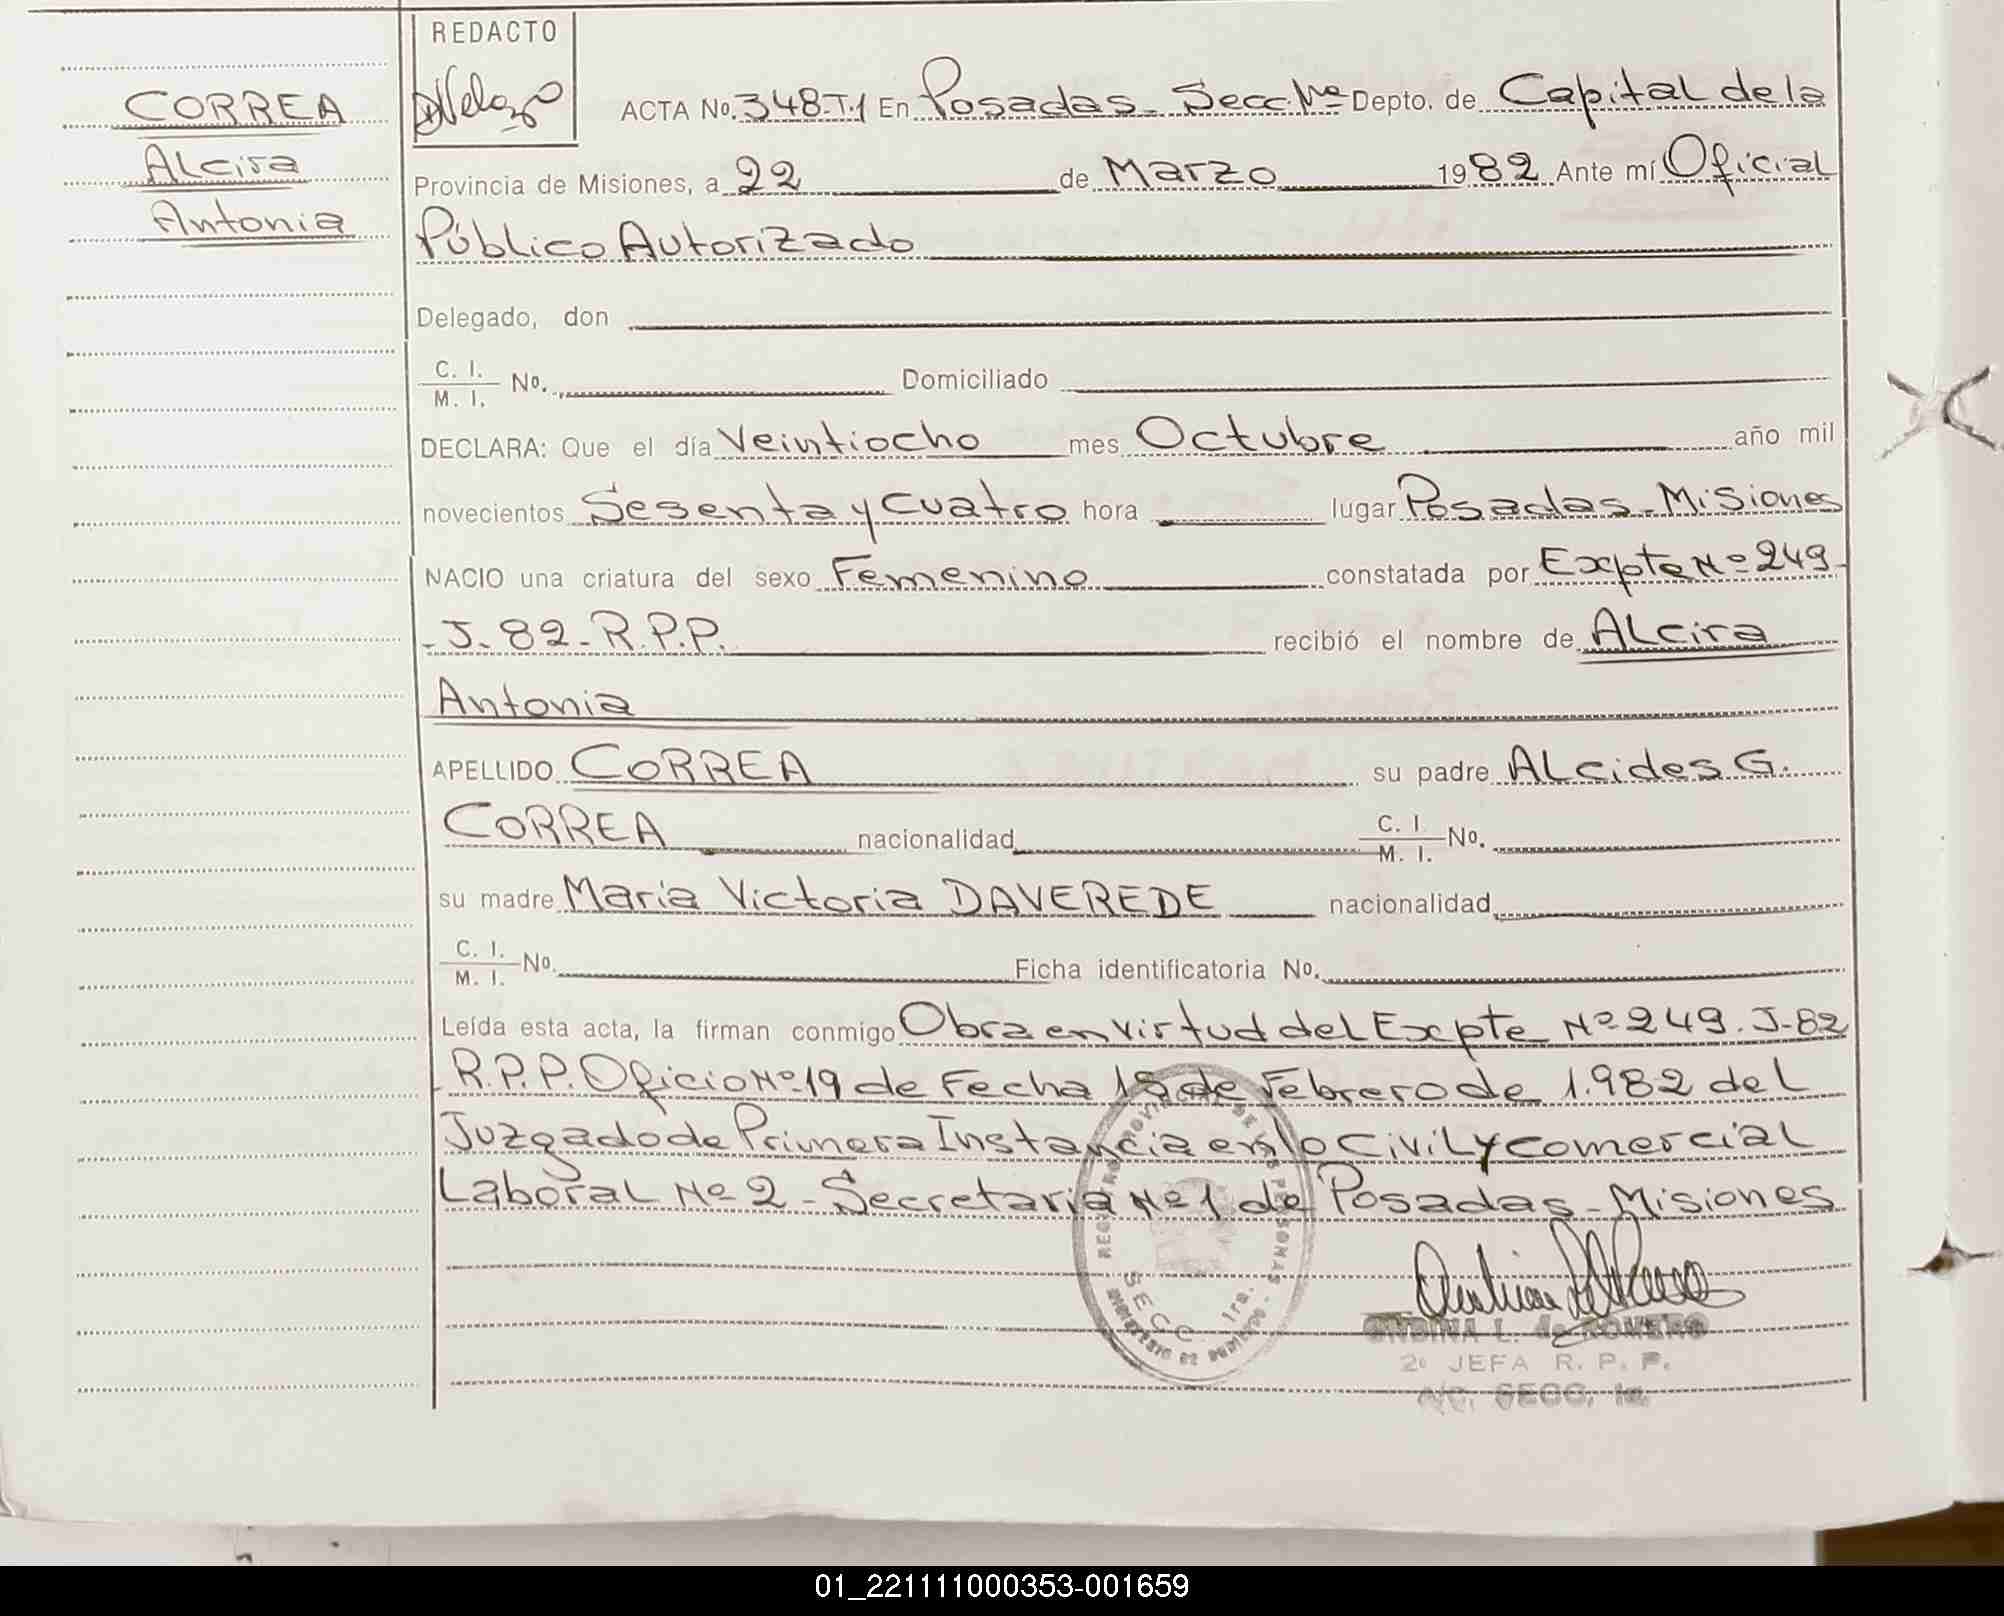 REDACTO
CORREA
Alcira
Antonia
ACTA No. 348.T.1 En Posadas - Secc. 1ra Depto. de Capital de la
Provincia de Misiones, a 22 de Marzo 1982 Ante mí Oficial
Público Autorizado
Delegado, don
C. I.
M. I. No.
Domiciliado
DECLARA: Que el día Veintiocho mes Octubre año mil
novecientos Sesenta y Cuatro hora lugar Posadas - Misiones
NACIO una criatura del sexo Femenino constatada por Expte Nº 249-
- J- 82 - R.P.P. recibió el nombre de Alcira
Antonia
APELLIDO CORREA su padre Alcides G.
CORREA nacionalidad C. I.
M. I. No.
su madre Maria Victoria DAVEREDE nacionalidad
C. I.
M. I. No. Ficha identificatoria No.
Leída esta acta, la firman conmigo Obra en virtud del Expte Nº 249. J-82
R.P.P. Oficio Nº 19 de Fecha de Febrero de 1.982 del
Juzgado de Primera Instancia en lo Civil y Comercial
Laboral Nº 2 - Secretaria Nº 1 de Posadas - Misiones
REGISTRO PROVINCIAL DE LAS PERSONAS - MISIONES
SECC. 1ra.
ONDINA L. de ROMERO
2º JEFA R. P. P.
A/C. SECC. 1a.
01_221111000353-001659